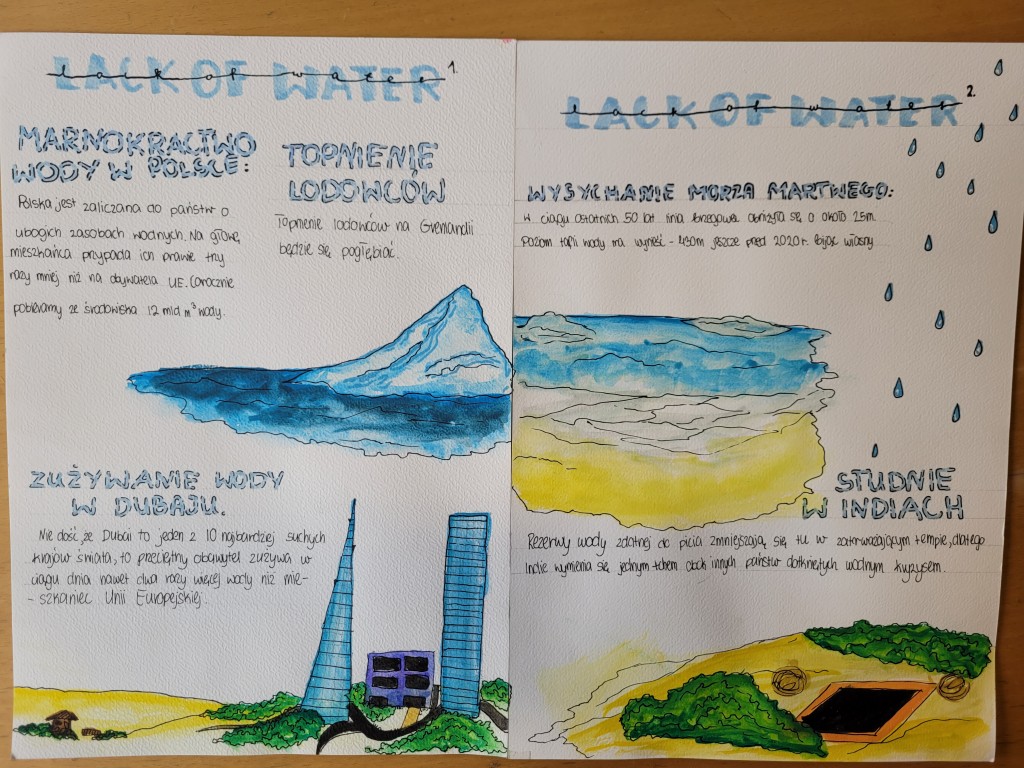 LACK OF WATER 1.
lack of water
MARNOKRACTWO
WODY W POLSCE:
Polska jest zaliczana do państw o
ubogich zasobach wodnych. Na głowę
mieszkańca przypada ich prawie trzy
razy mniej niż na obywatela UE. Corocznie
pobieramy ze środowiska 12 mld m³ wody.
TOPNIENIE
LODOWCÓW
Topnienie lodowców na Grenlandii
będzie się pogłębiać.
ZUŻYWANIE WODY
W DUBAJU.
Nie dość, że Dubai to jeden z 10 najbardziej suchych
krajów świata, to przeciętny obywatel zużywa w
ciągu dnia nawet dwa razy więcej wody niż mie-
- szkaniec Unii Europejskiej.
LACK OF WATER 2.
lack of water
WYSYCHANIE MORZA MARTWEGO:
W ciągu ostatnich 50 lat linia brzegowa obniżyła się o około 25m.
Poziom tafli wody ma wynieść jeszcze przed 2020 r. bijąc własny
STUDNIE
W INDIACH
Rezerwy wody zdatnej do picia zmniejszają się tu w zatrważającym tempie, dlatego
Indie wymienia się jednym tchem obok innych państw dotkniętych wodnym kryzysem.